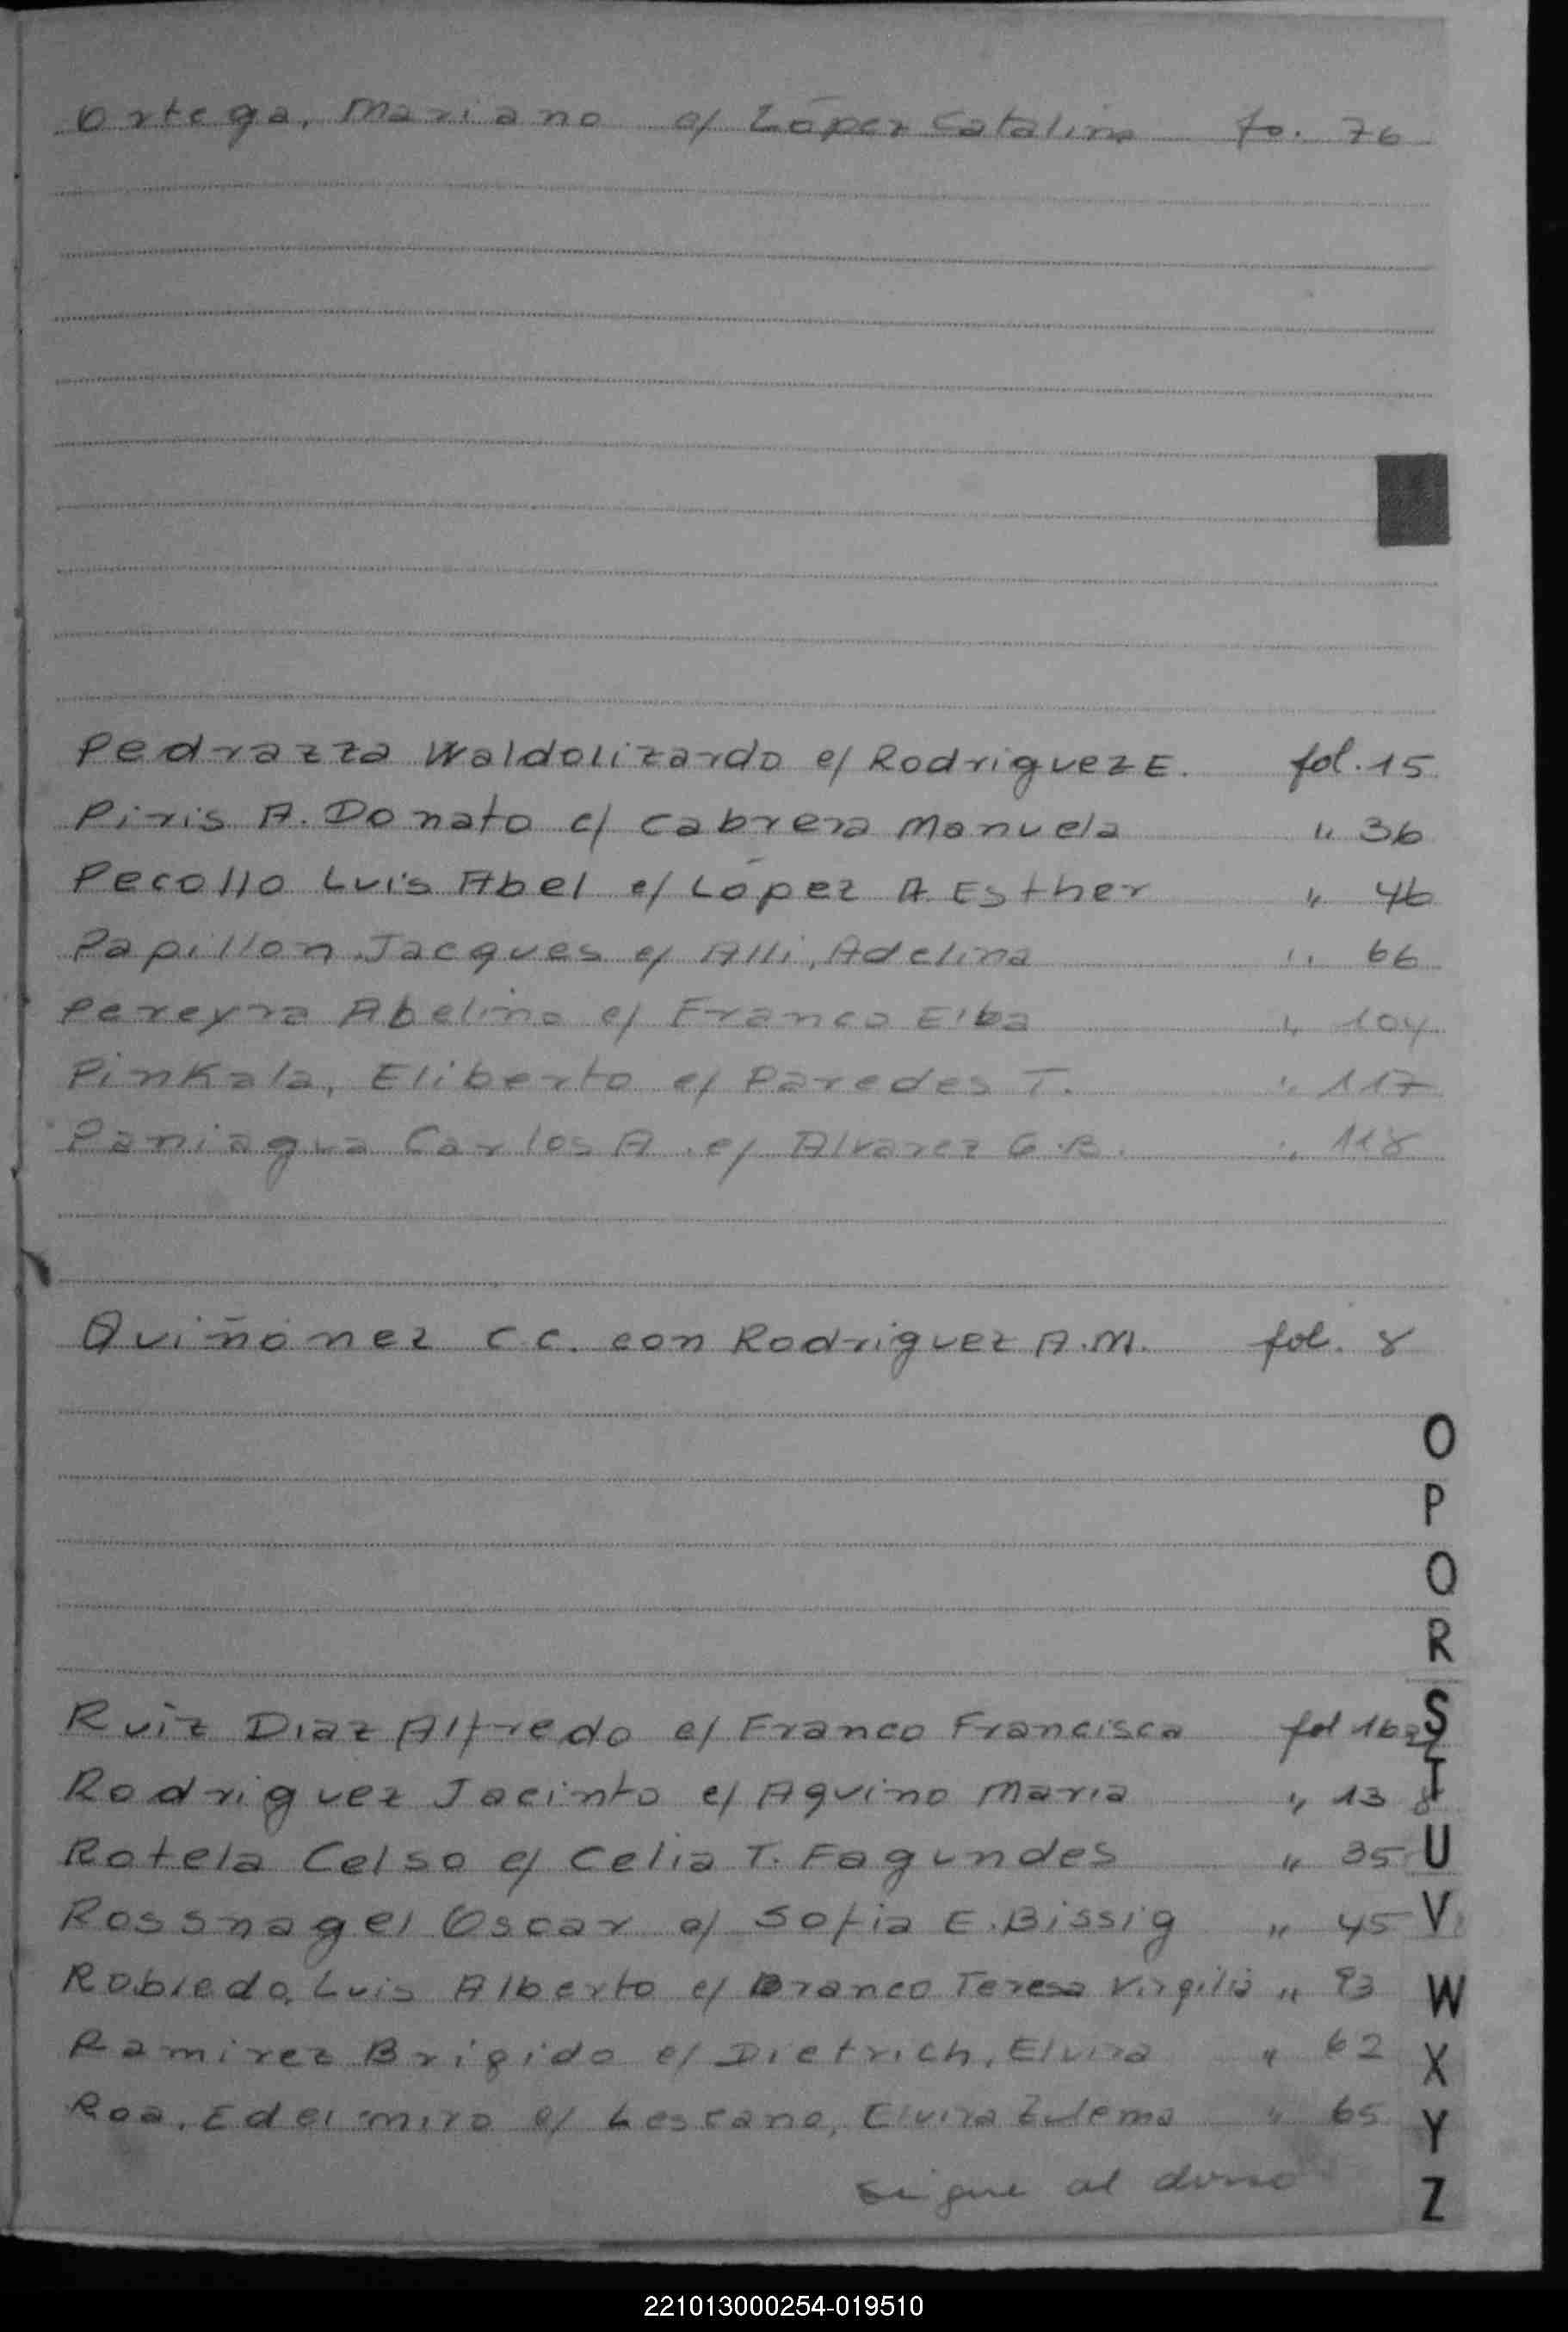 Ortega, Mariano c/ López Catalina fo. 76
Pedrazza Waldolizardo c/ Rodriguez E. fol. 15
Piris A. Donato c/ Cabrera Manuela " 36
Pecollo Luis Abel c/ López A. Esther " 46
Papillon, Jacques c/ Alli, Adelina " 66
Pereyra Abelino c/ Franco Elba " 104
Pinkala, Eliberto c/ Paredes T. " 117
Paniagua Carlos A. c/ Alvarez G.B. " 118
Quiñonez C.C. con Rodriguez A.M. fol. 8
O
P
Q
R
Ruiz Diaz Alfredo c/ Franco Francisca fol 16
S
Rodriguez Jacinto c/ Aquino Maria " 13
T
Rotela Celso c/ Celia T. Fagundes " 35
U
Rossnagel Oscar c/ Sofia E. Bissig " 45
V
Robledo, Luis Alberto c/ Branco Teresa Virgilia " 93
W
Ramirez Brigido c/ Dietrich, Elvira " 62
X
Roa, Edelmiro c/ Lescano, Elvira Zulema " 65
Y
sigue al dorso
Z
221013000254-019510